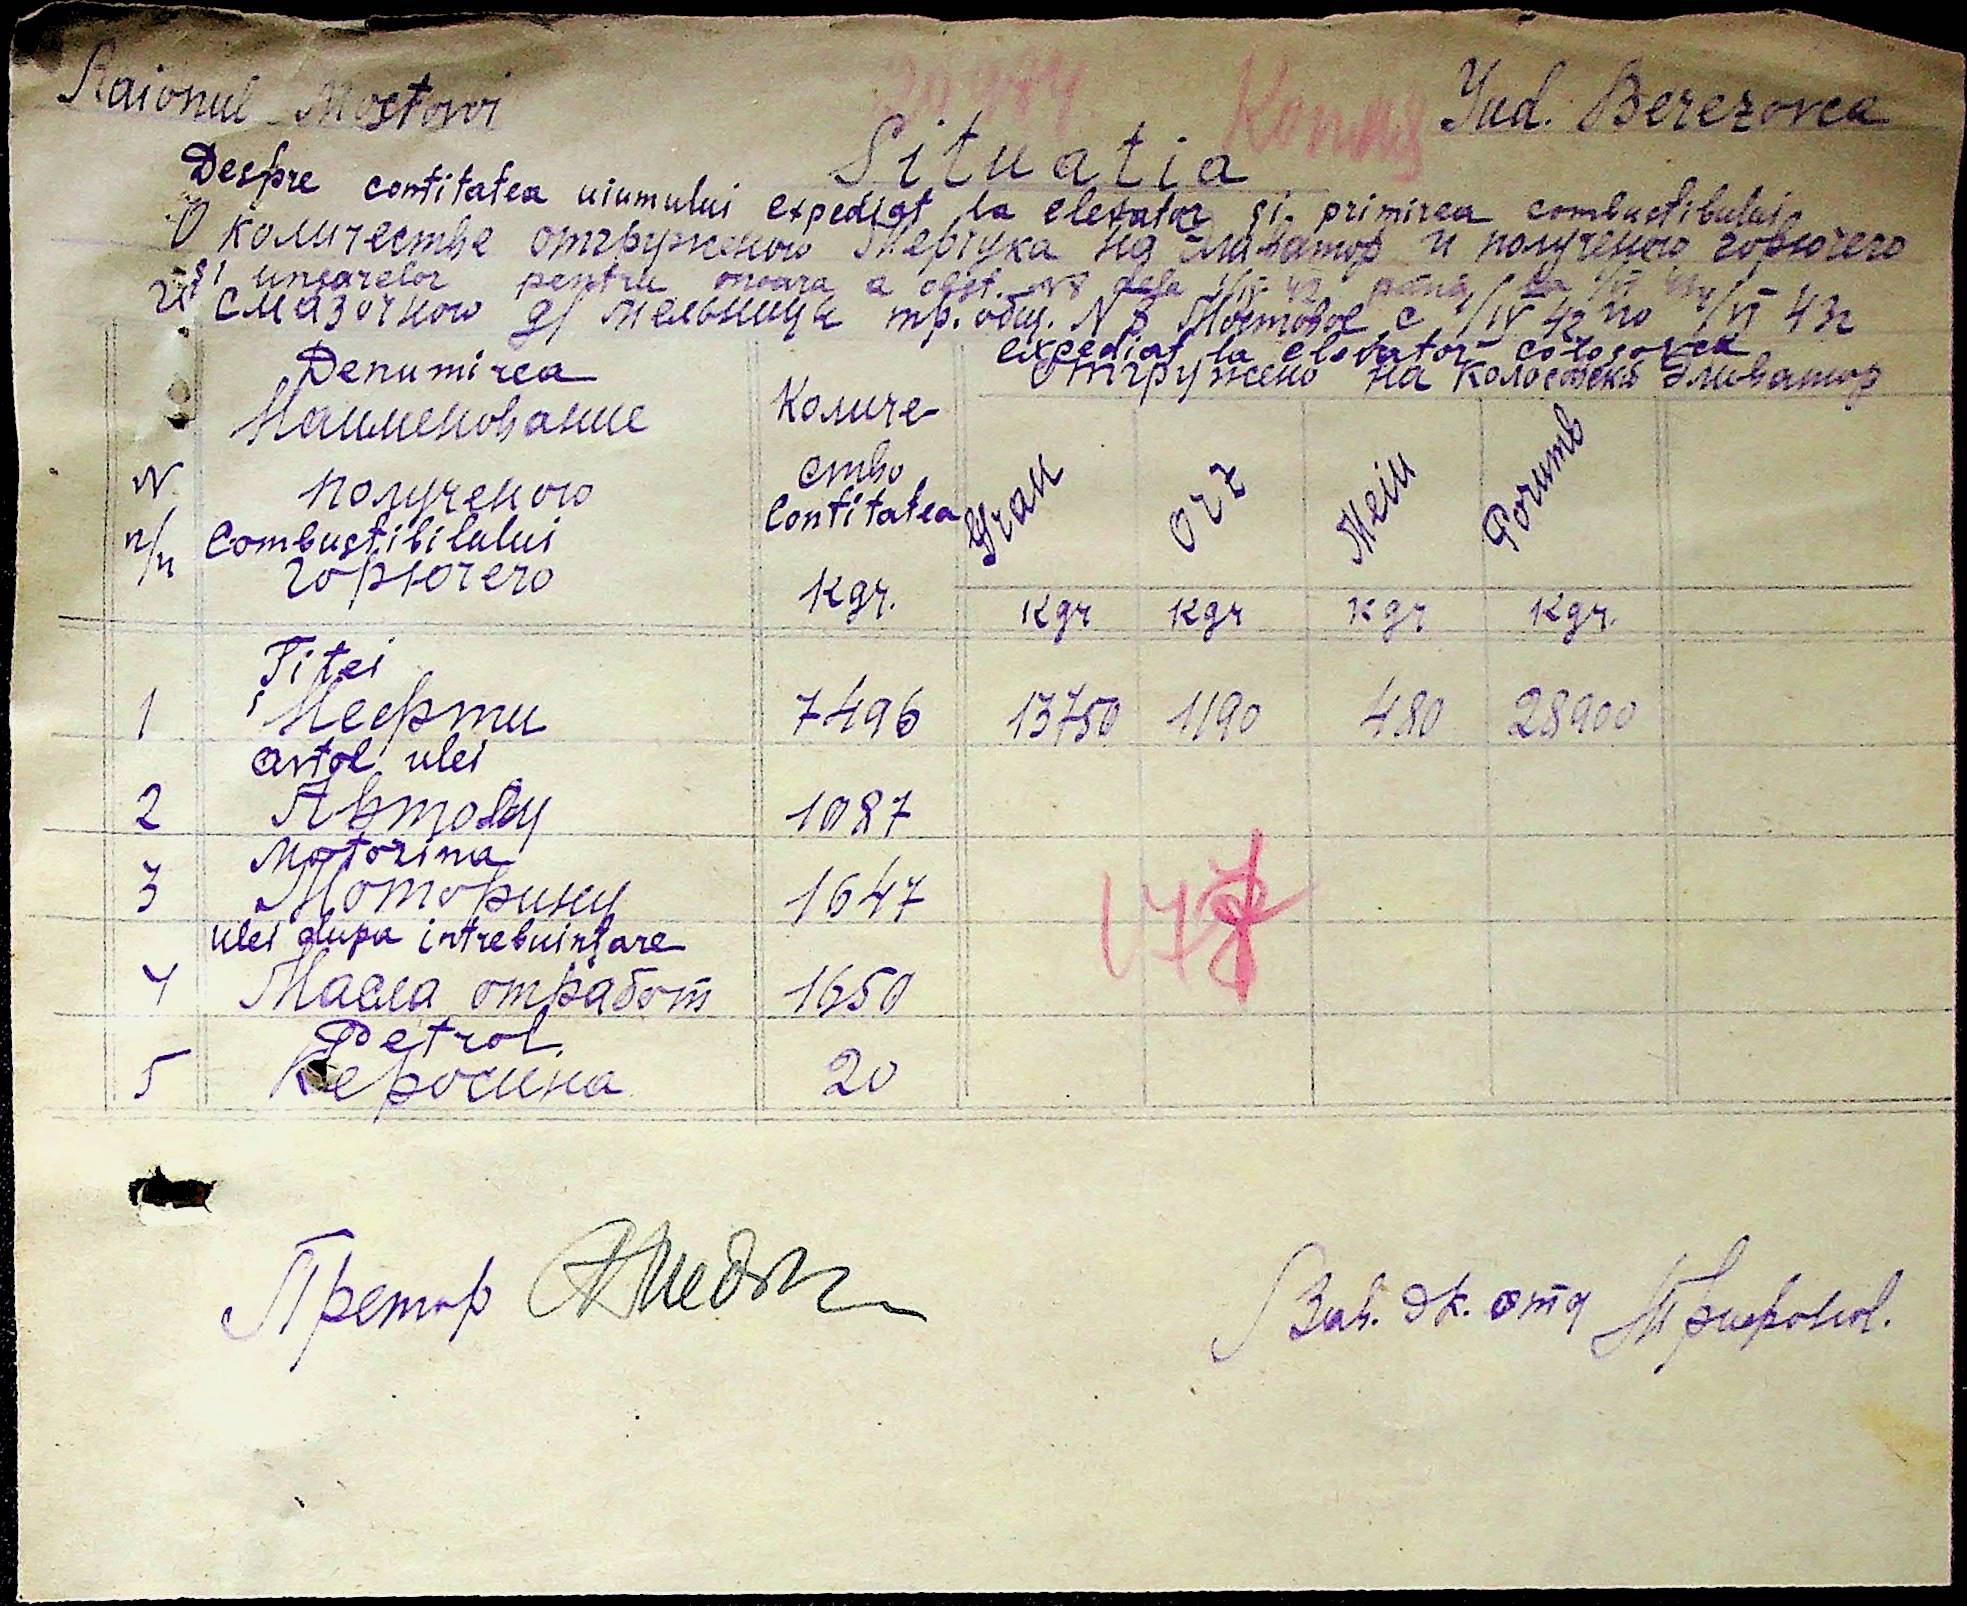 Raionul Mostovoi
Jud. Berezovca
Situatia
Despre contitatea uiumului expediat la elevator și primirea combustibului
О количестве отгруженого Мерчука на Эливатор и полученого горючего
și unsorelor pentru moara a obșt. N8 dela 1/IV 42 până la 1/VI 43
и смазочного д/ мельницы тр. общ. N 8 Мостовое с 1/IV 42 по 1/VI 43г
N п/п
Denumirea
Наименование
полученого
Combustibilului
горючего
Количе-
ство
Contitatea
Kgr.
expediat la elevator Colosovca
Отгружено на Колосовски Эливатор
Grau
Orz
Meiu
Porumb
Kgr Kgr Kgr Kgr.
Titei
1 Нефти 7496 13750 1190 480 28900
avtol ulei
2 Автолу 1087
Motorina
3 Моторину 1647
ulei dupa intrebuințare
4 Масла отработ 1650
Petrol.
5 Керосина 20
Претор
Зав. эк. отд